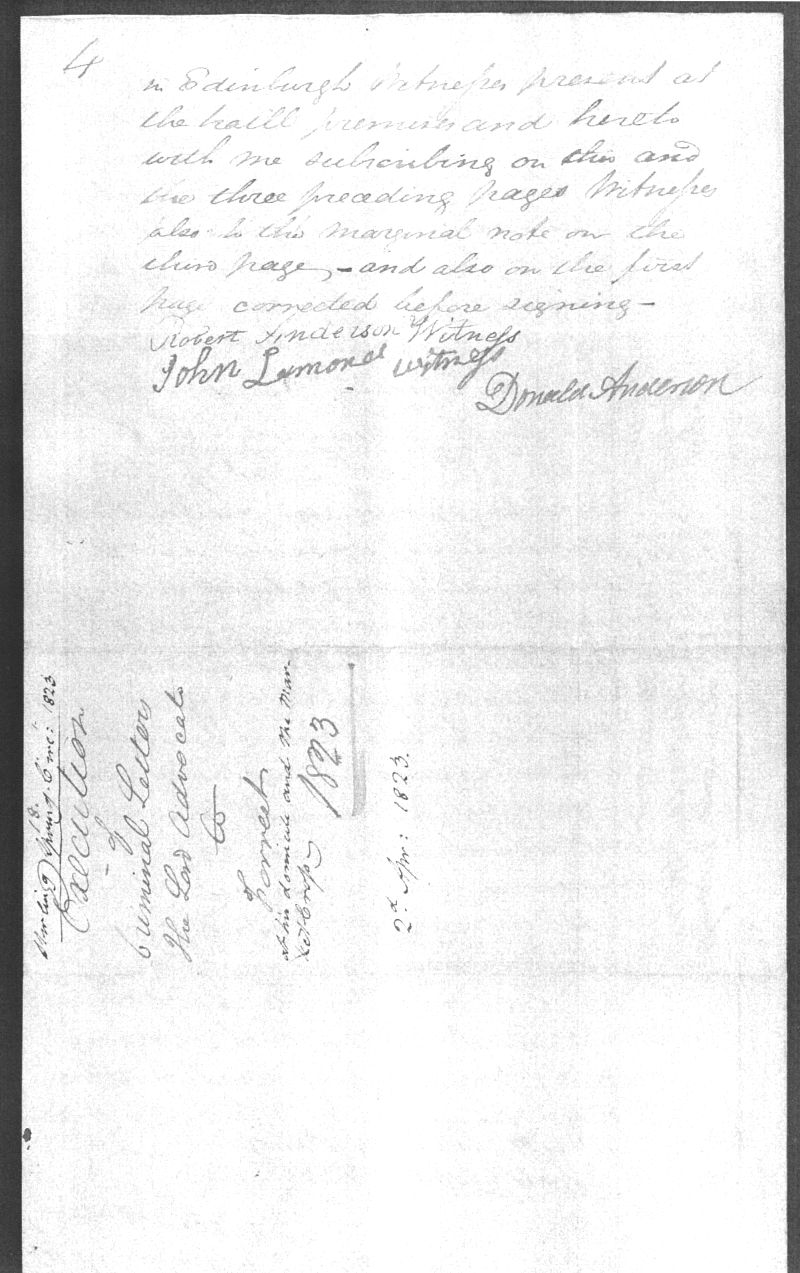 4
in Edinburgh Witnesses present at
the haill premises and hereto
with me subscribing on this and
the three preceding pages Witnesses
also to the marginal note on the
third page, - and also on the first
page corrected before signing -
Robert Anderson Witness
John Lamond witness
Donald Anderson
18.
Stirling Spring Circt: 1823
Execution
of
Criminal Letters
The Lord Advocate
to
Forrest
at his domicile and the Mar-
ket Cross
1823
2d. Apr: 1823.